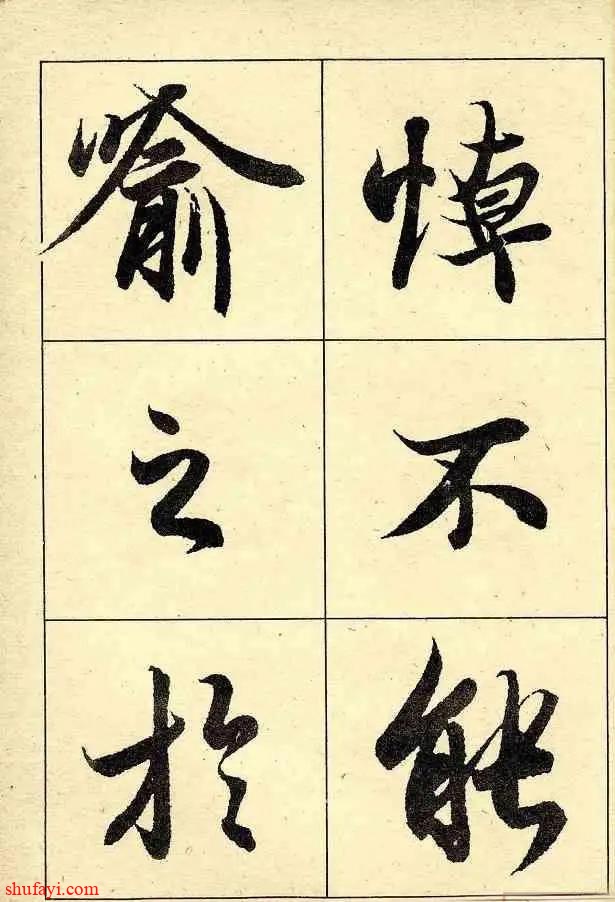 悼不能
喻之於
shufayi.com